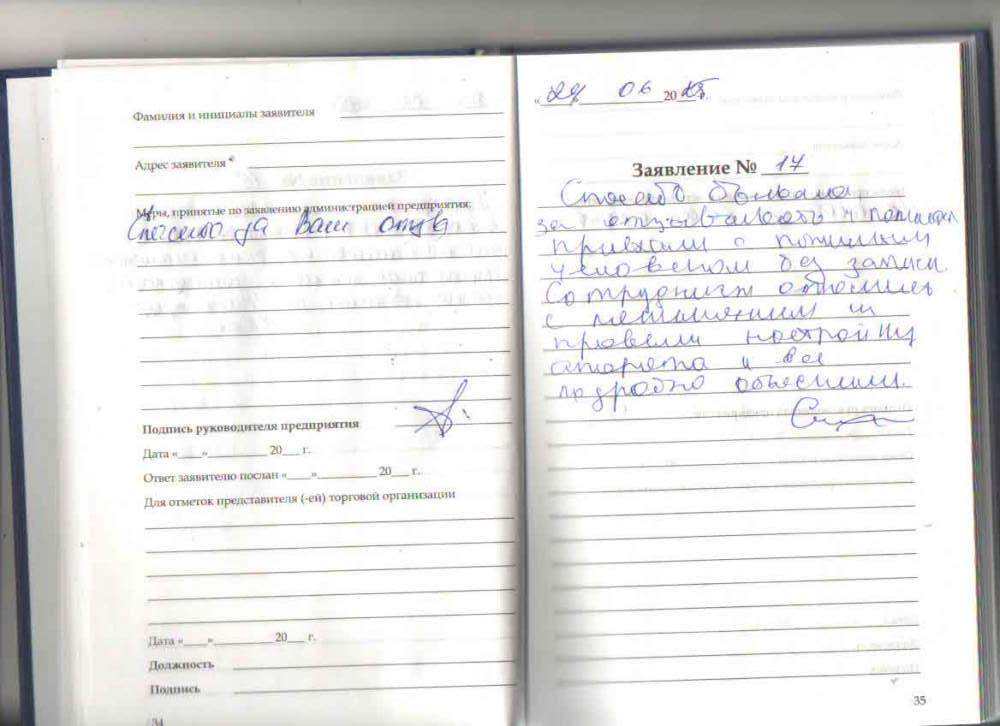 Фамилия и инициалы заявителя
Адрес заявителя
Меры, принятые по заявлению администрацией предприятия:
Спасибо за Ваш отзыв
Подпись руководителя предприятия
Дата «___»__________ 20___ г.
Ответ заявителю послан «___»__________ 20___ г.
Для отметок представителя (-ей) торговой организации
Дата «___»__________ 20___ г.
Должность
Подпись
34
« 06 20
Заявление № 17
Спасибо
за отзывчивость и помощь
приехали с пожилым
человеком без записи.
Сотрудники отнеслись
с пониманием и
провели настройку
апарата и все
подробно объяснили.
35